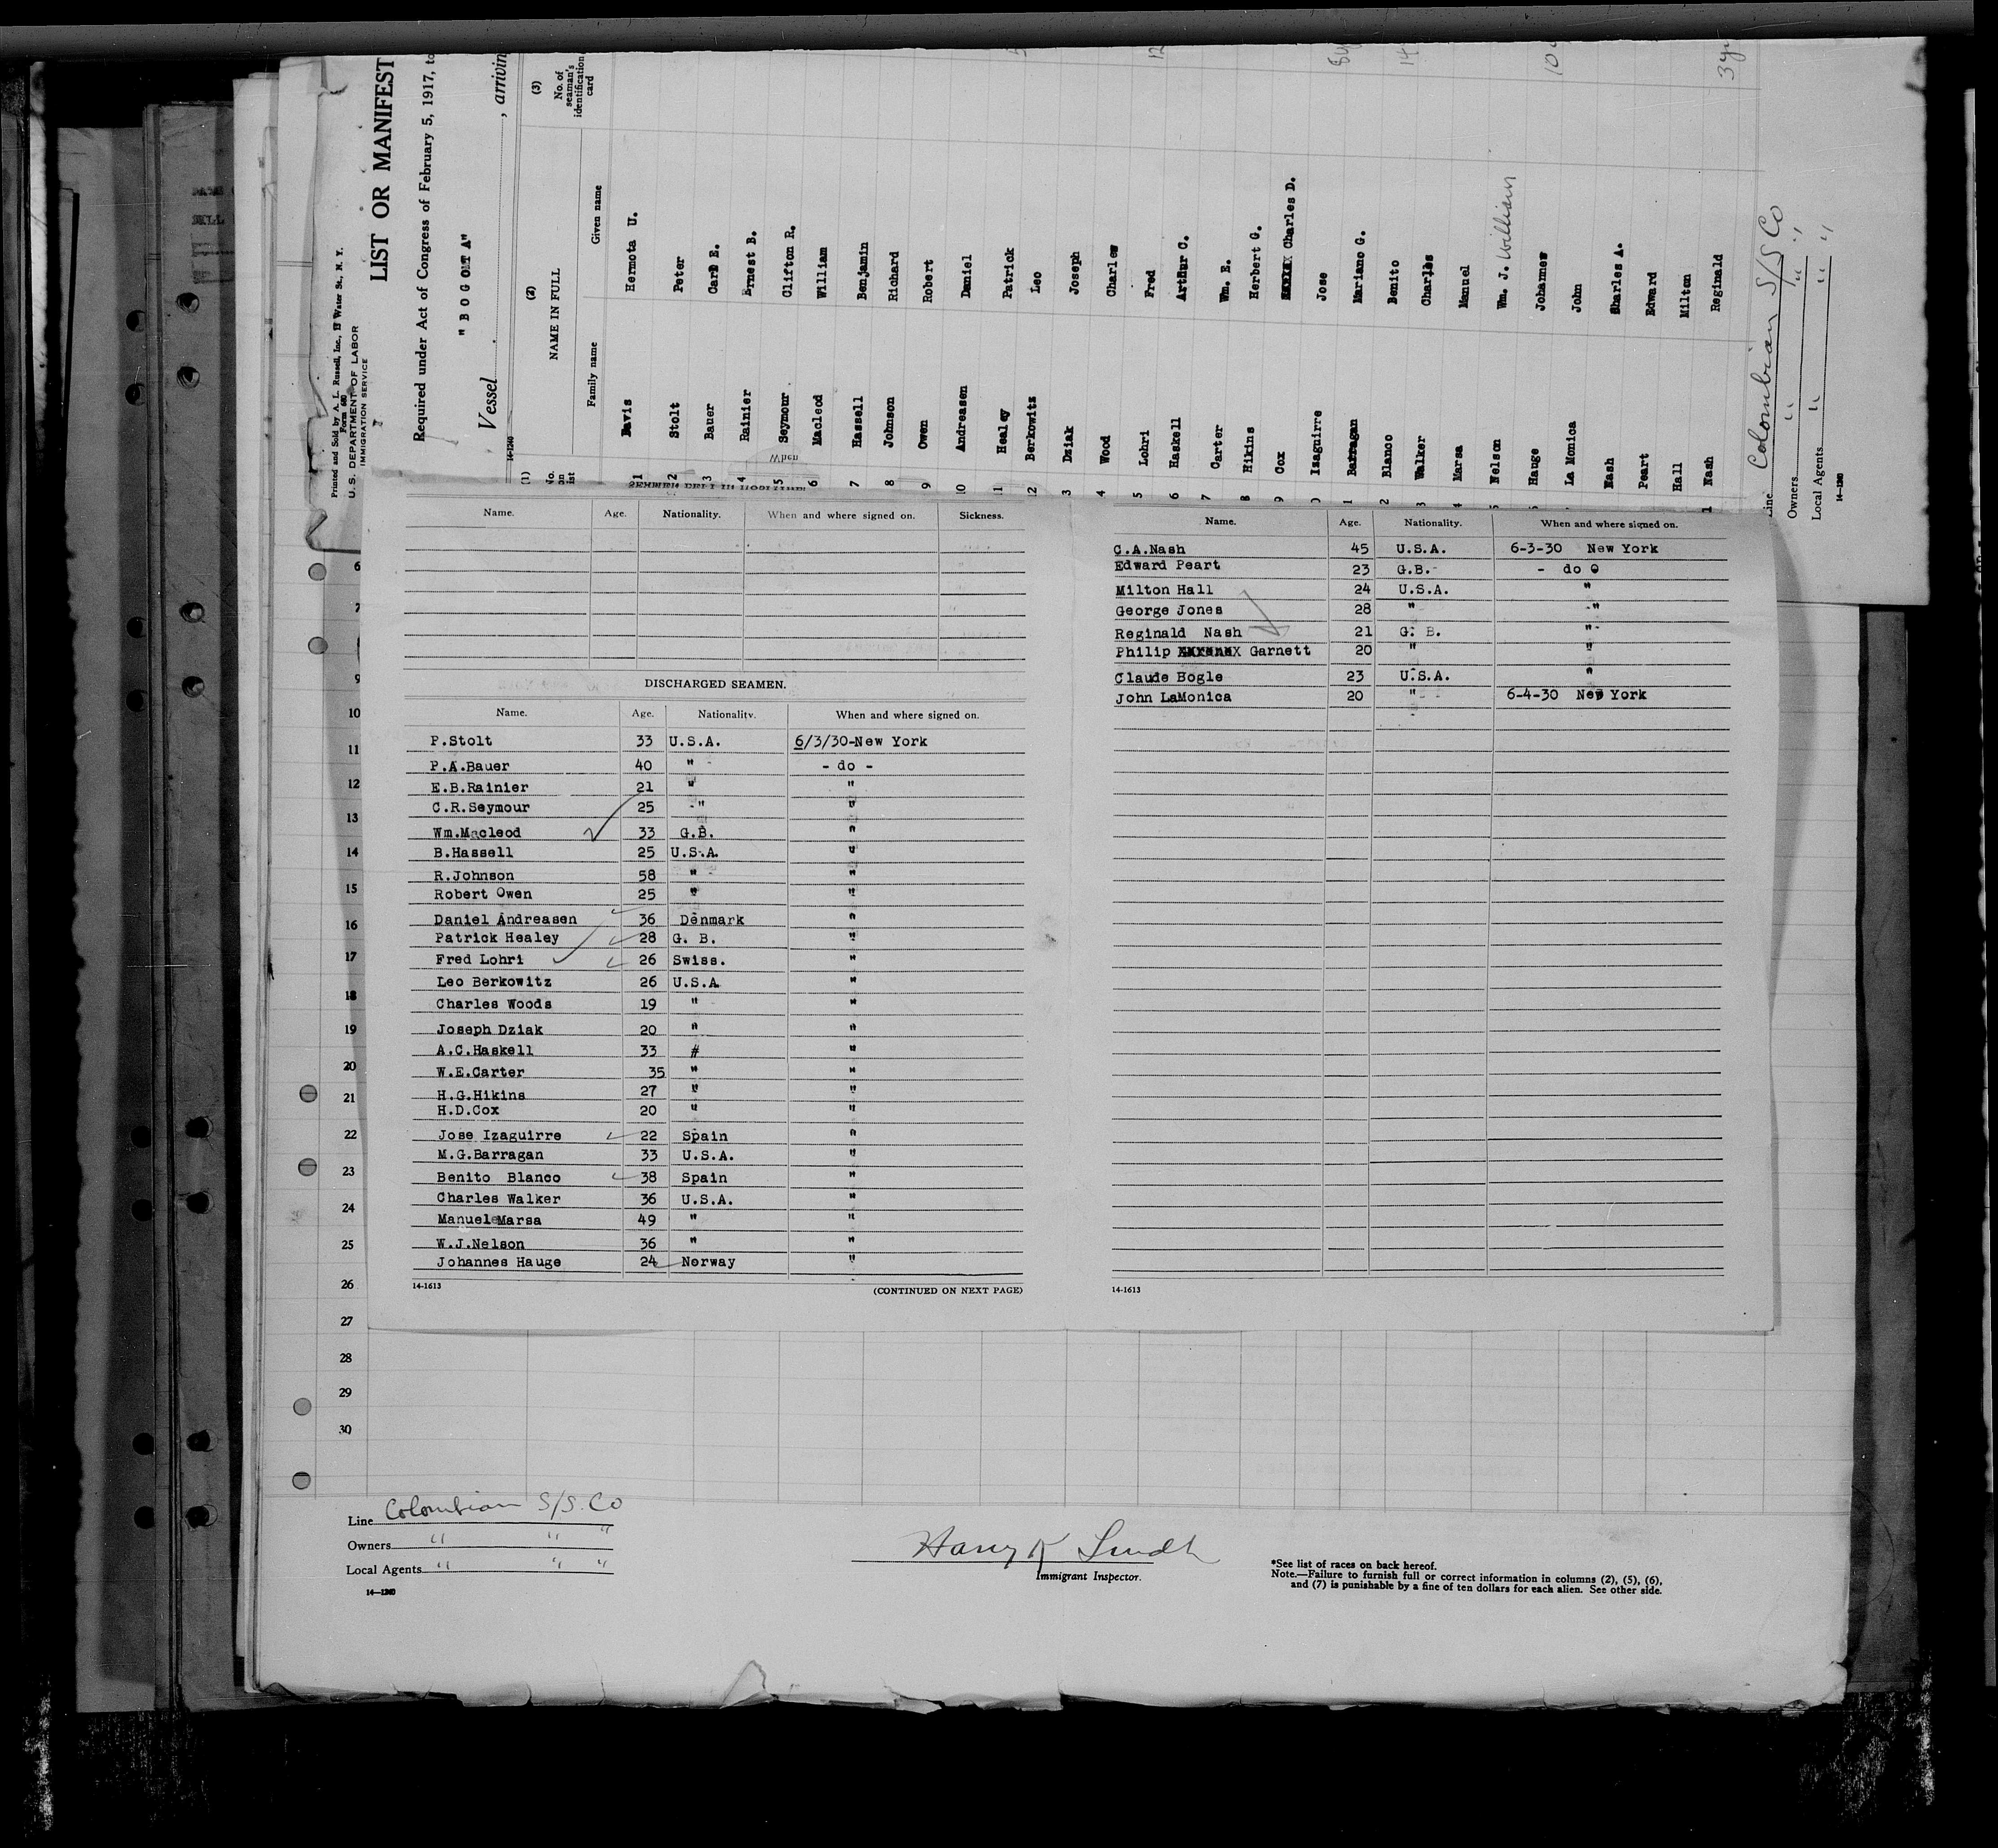 Printed and Sold by A. L. Russell, Inc., Water St., N. Y.
Form 680
U.S. DEPARTMENT OF LABOR
IMMIGRATION SERVICE
LIST OR MANIFEST
Required under Act of Congress of February 5, 1917, to
"BOGOTA"
Vessel , arrivin
14-1240
(1) (2) (3)
No. on list NAME IN FULL No. of seaman's identification card
Family name Given name
1 Davis Hermota U.
2 Stolt Peter
3 Bauer Carl E.
4 Rainier Ernest B.
5 Seymour Clifton R.
6 Macleod William
7 Hassell Benjamin
8 Johnson Richard
9 Owen Robert
10 Andreasen Daniel
11 Healey Patrick
12 Berkowitz Leo
3 Dziak Joseph
4 Wood Charles
5 Lohri Fred
6 Haskell Arthur C.
7 Carter Wm. E.
8 Hikins Herbert G.
9 Cox Charles D.
0 Izaguirre Jose
1 Barragan Mariano G.
2 Blanco Benito
3 Walker Charles
4 Marsa Manuel
5 Nelson Wm. J. William
Hauge Johannes
La Monica John
Nash Charles A.
Peart Edward
Hall Milton
Nash Reginald
Line Colombian S/S Co
Owners " " "
Local Agents " " "
14-1240
When
SEAMEN LEFT IN HOSPITAL
Name. Age. Nationality. When and where signed on. Sickness.
DISCHARGED SEAMEN.
Name. Age. Nationality. When and where signed on.
P.Stolt 33 U.S.A. 6/3/30-New York
P.A.Bauer 40 " - do -
E.B.Rainier 21 " "
C.R.Seymour 25 " "
Wm.Macleod 33 G.B. "
B.Hassell 25 U.S.A. "
R.Johnson 58 " "
Robert Owen 25 " "
Daniel Andreasen 36 Denmark "
Patrick Healey 28 G. B. "
Fred Lohri 26 Swiss. "
Leo Berkowitz 26 U.S.A. "
Charles Woods 19 " "
Joseph Dziak 20 " "
A.C.Haskell 33 # "
W.E.Carter 35 " "
H.G.Hikins 27 " "
H.D.Cox 20 " "
Jose Izaguirre 22 Spain "
M.G.Barragan 33 U.S.A. "
Benito Blanco 38 Spain "
Charles Walker 36 U.S.A. "
Manuel Marsa 49 " "
W.J.Nelson 36 " "
Johannes Hauge 24 Norway "
14-1613 (CONTINUED ON NEXT PAGE)
Name. Age. Nationality. When and where signed on.
C.A.Nash 45 U.S.A. 6-3-30 New York
Edward Peart 23 G.B. - do
Milton Hall 24 U.S.A. "
George Jones 28 " "
Reginald Nash 21 G. B. "
Philip Garnett 20 " "
Claude Bogle 23 U.S.A. "
John LaMonica 20 " 6-4-30 New York
14-1613
6
7
9
10
11
12
13
14
15
16
17
18
19
20
21
22
23
24
25
26
27
28
29
30
Line Colombian S/S. Co
Owners " " "
Local Agents " " "
14-1240
Harry K Lindh
Immigrant Inspector.
*See list of races on back hereof.
Note.—Failure to furnish full or correct information in columns (2), (5), (6),
and (7) is punishable by a fine of ten dollars for each alien. See other side.